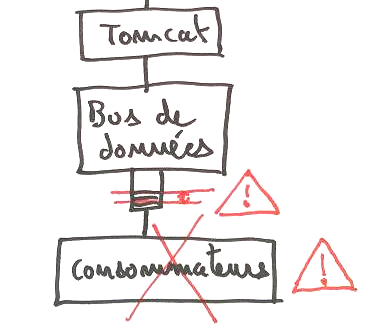 Tomcat
Bus de
données
Consommateurs